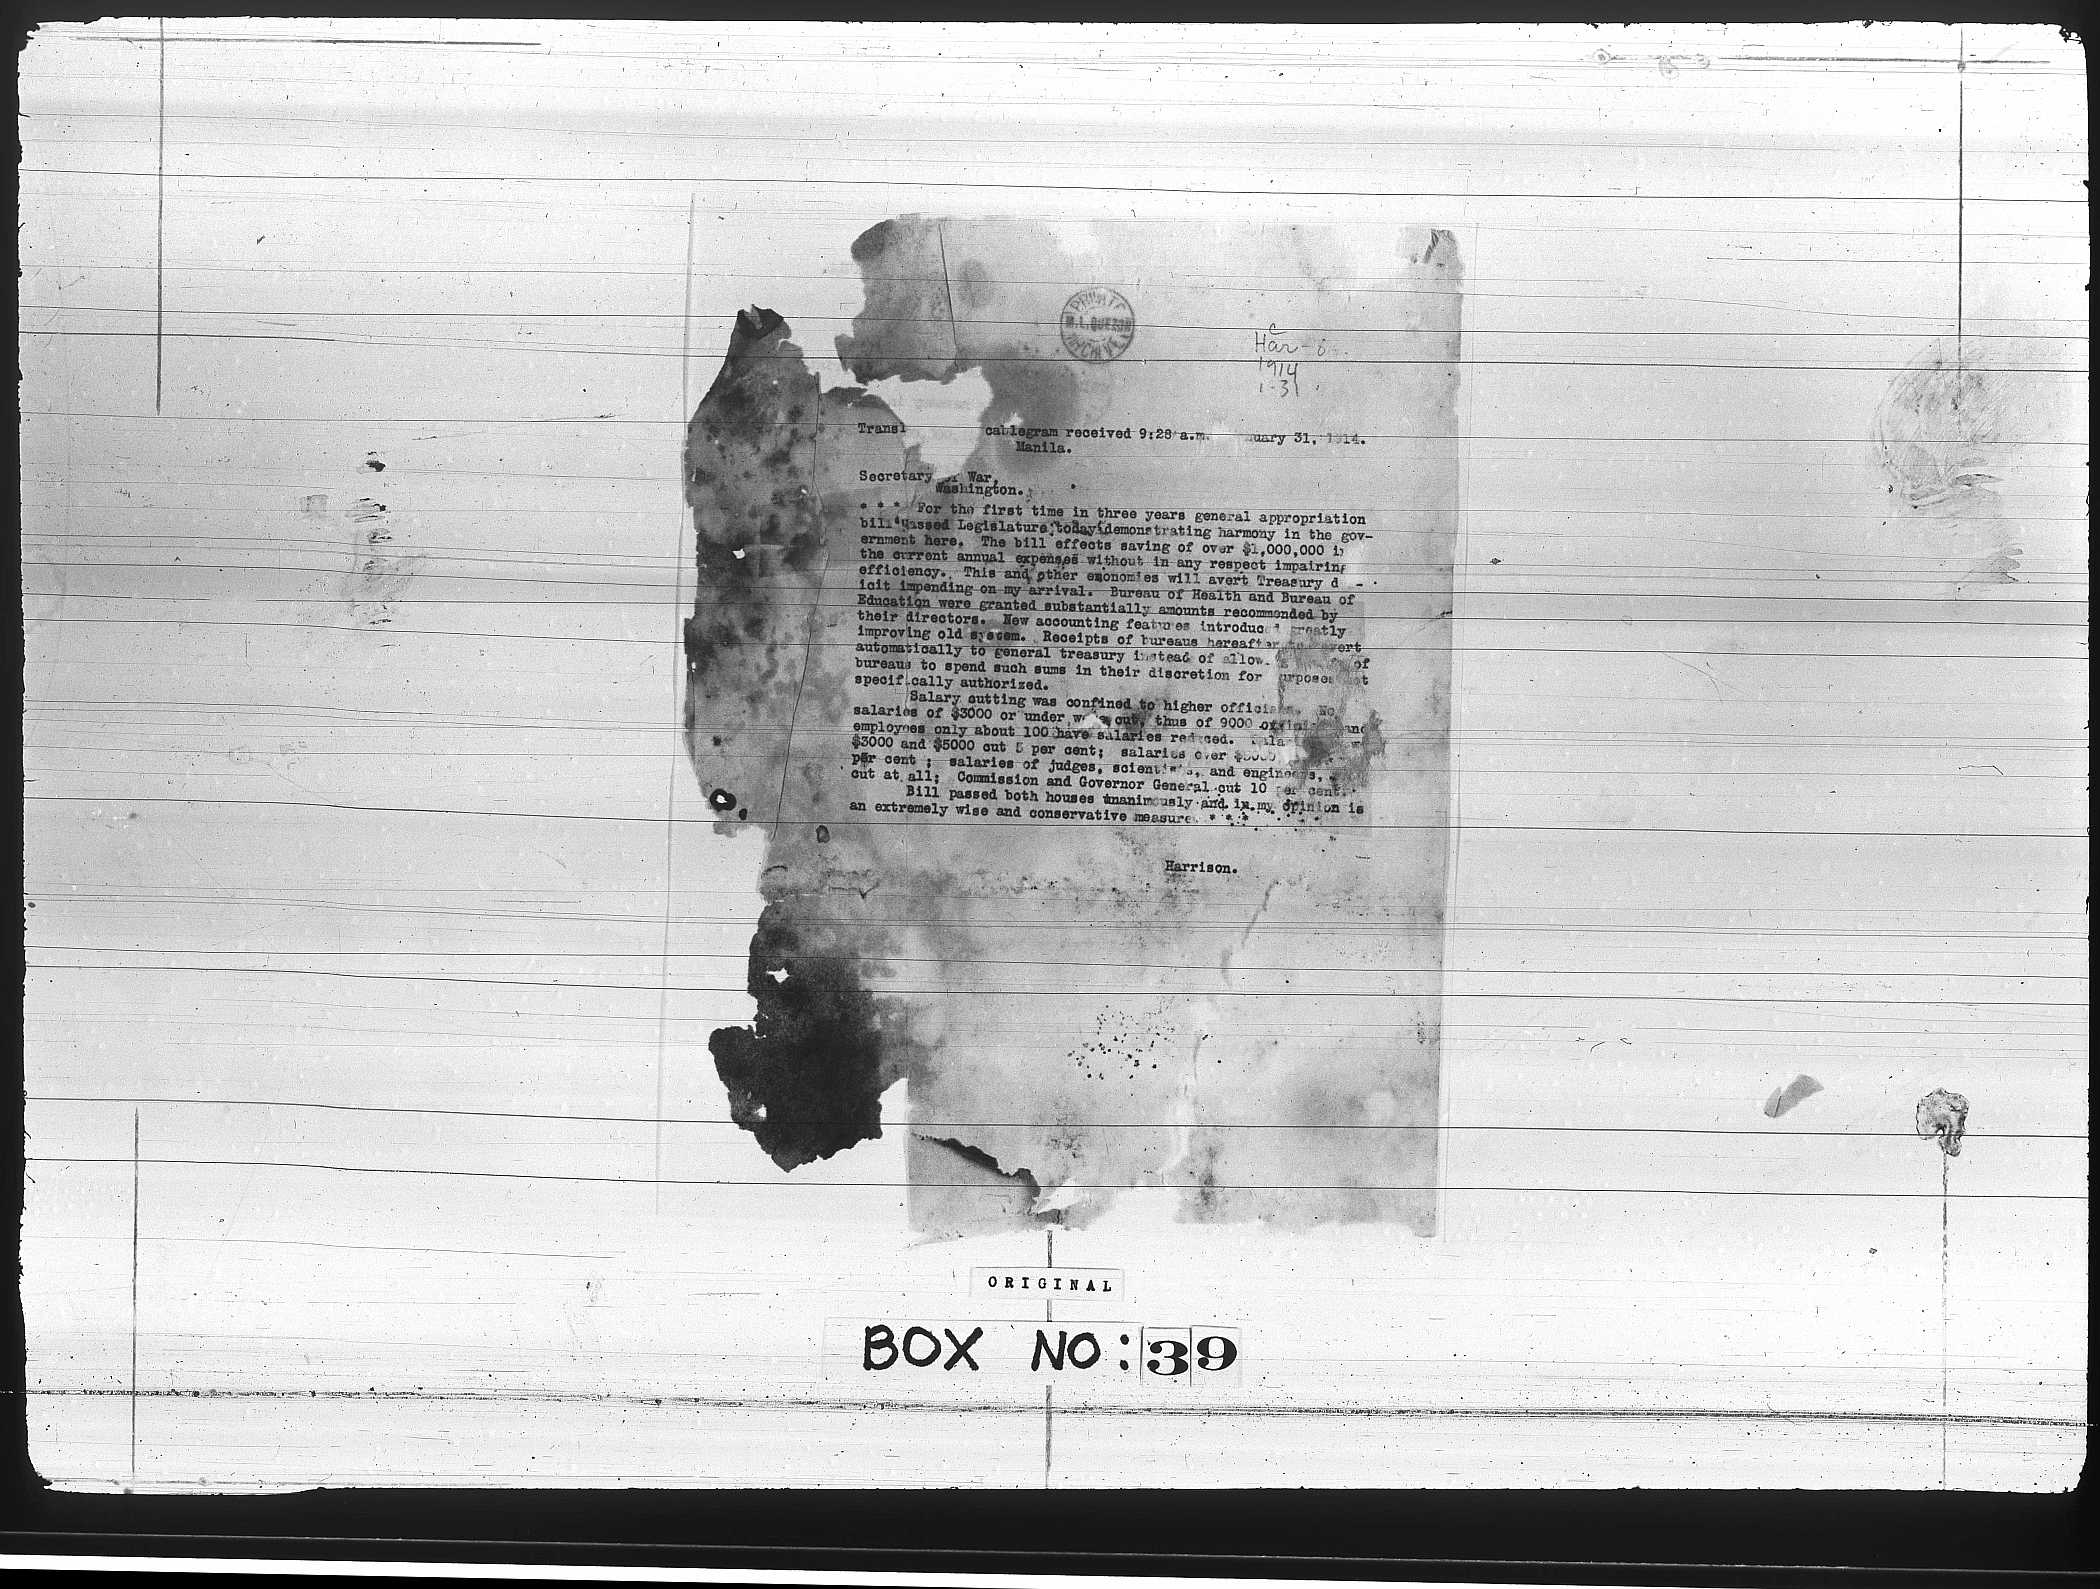 PRIVATE
M. L. QUEZON
ARCHIVE
c
Har-
1914
1-31
Transl cablegram received 9:28 a.m. nuary 31, 1914.
Manila.
Secretary of War,
Washington.
* * * For the first time in three years general appropriation
bill passed Legislature today demonstrating harmony in the gov-
ernment here. The bill effects saving of over $1,000,000 in
the current annual expenses without in any respect impairing
efficiency. This and other economies will avert Treasury d -
icit impending on my arrival. Bureau of Health and Bureau of
Education were granted substantially amounts recommended by
their directors. New accounting features introduced greatly
improving old system. Receipts of bureaus hereafter to revert
automatically to general treasury instead of allow of
bureaus to spend such sums in their discretion for purposes not
specifically authorized.
Salary cutting was confined to higher officials. No
salaries of $3000 or under were cut, thus of 9000 officials and
employees only about 100 have salaries reduced.
$3000 and $5000 cut 5 per cent; salaries over $5000
per cent ; salaries of judges, scientists, and engineers,
cut at all; Commission and Governor General cut 10 per cent.
Bill passed both houses unanimously and in my opinion is
an extremely wise and conservative measure. * * *
Harrison.
ORIGINAL
BOX NO: 39